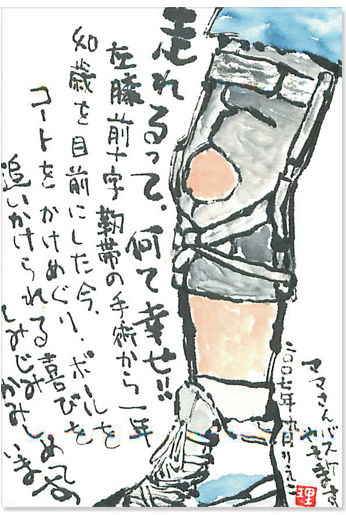 走れるって、何て幸せ!!
左膝前十字靱帯の手術から一年
40歳を目前にした今、
コートをかけめぐり、ボールを
追いかけられる喜びを
しみじみかみしめています
ママさんバスケ
二〇〇七年九月りえこ
理